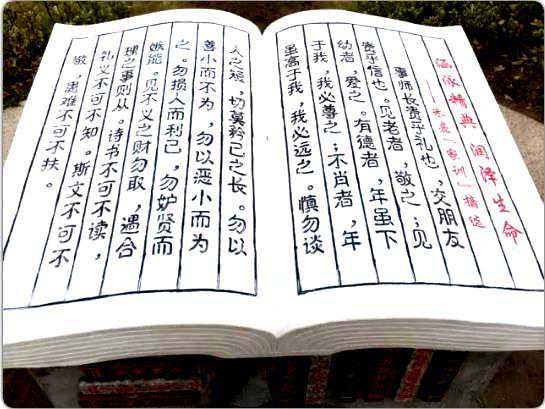 涵泳精典 润泽生命
——朱熹「家训」摘选
事师长贵乎礼也，交朋友
贵乎信也。见老者，敬之；见
幼者，爱之。有德者，年虽下
于我，我必尊之；不肖者，年
虽高于我，我必远之。慎勿谈
人之短，切莫矜己之长。勿以
善小而不为，勿以恶小而为
之。勿损人而利己，勿妒贤而
嫉能。见不义之财勿取，遇合
理之事则从。诗书不可不读，
礼义不可不知。斯文不可不
敬，患难不可不扶。